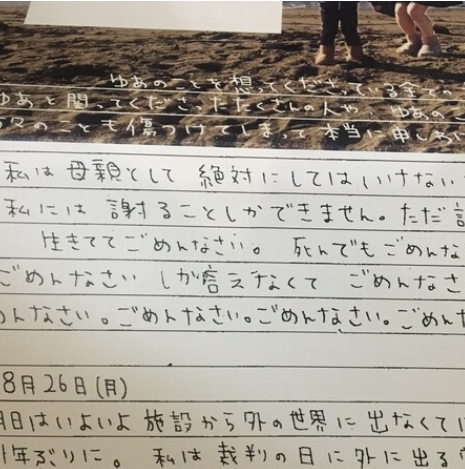 ゆあのことを想ってくださっている全ての
ゆあと関ってくださったたくさんの人や ゆあのこ
のことも傷つけてしまって本当に申し
私は母親として 絶対にしてはいけない
私には 謝ることしかできません。ただ
生きててごめんなさい。 死んでもごめんな
ごめんなさい しか言えなくて ごめんなさ
めんなさい。ごめんなさい。ごめんなさい。ごめんな
8月26日(月)
明日はいよいよ 施設から外の世界に 出なくては
年ぶりに。 私は 裁判の日に外に出る